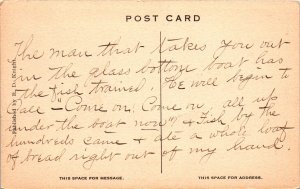 POST CARD
The man that takes you out
in the glass bottom boat has
the fish trained. He will begin to
call "Come on, Come on, all up
under the boat now" & fish by the
hundreds came & ate a whole loaf
of bread right out of my hand.
THIS SPACE FOR MESSAGE.
THIS SPACE FOR ADDRESS.